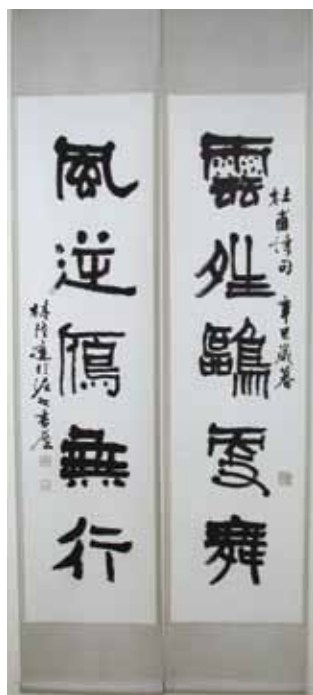 雲夝鷗更舞
杜甫詩句 辛巳歲暮
風逆鴈無行